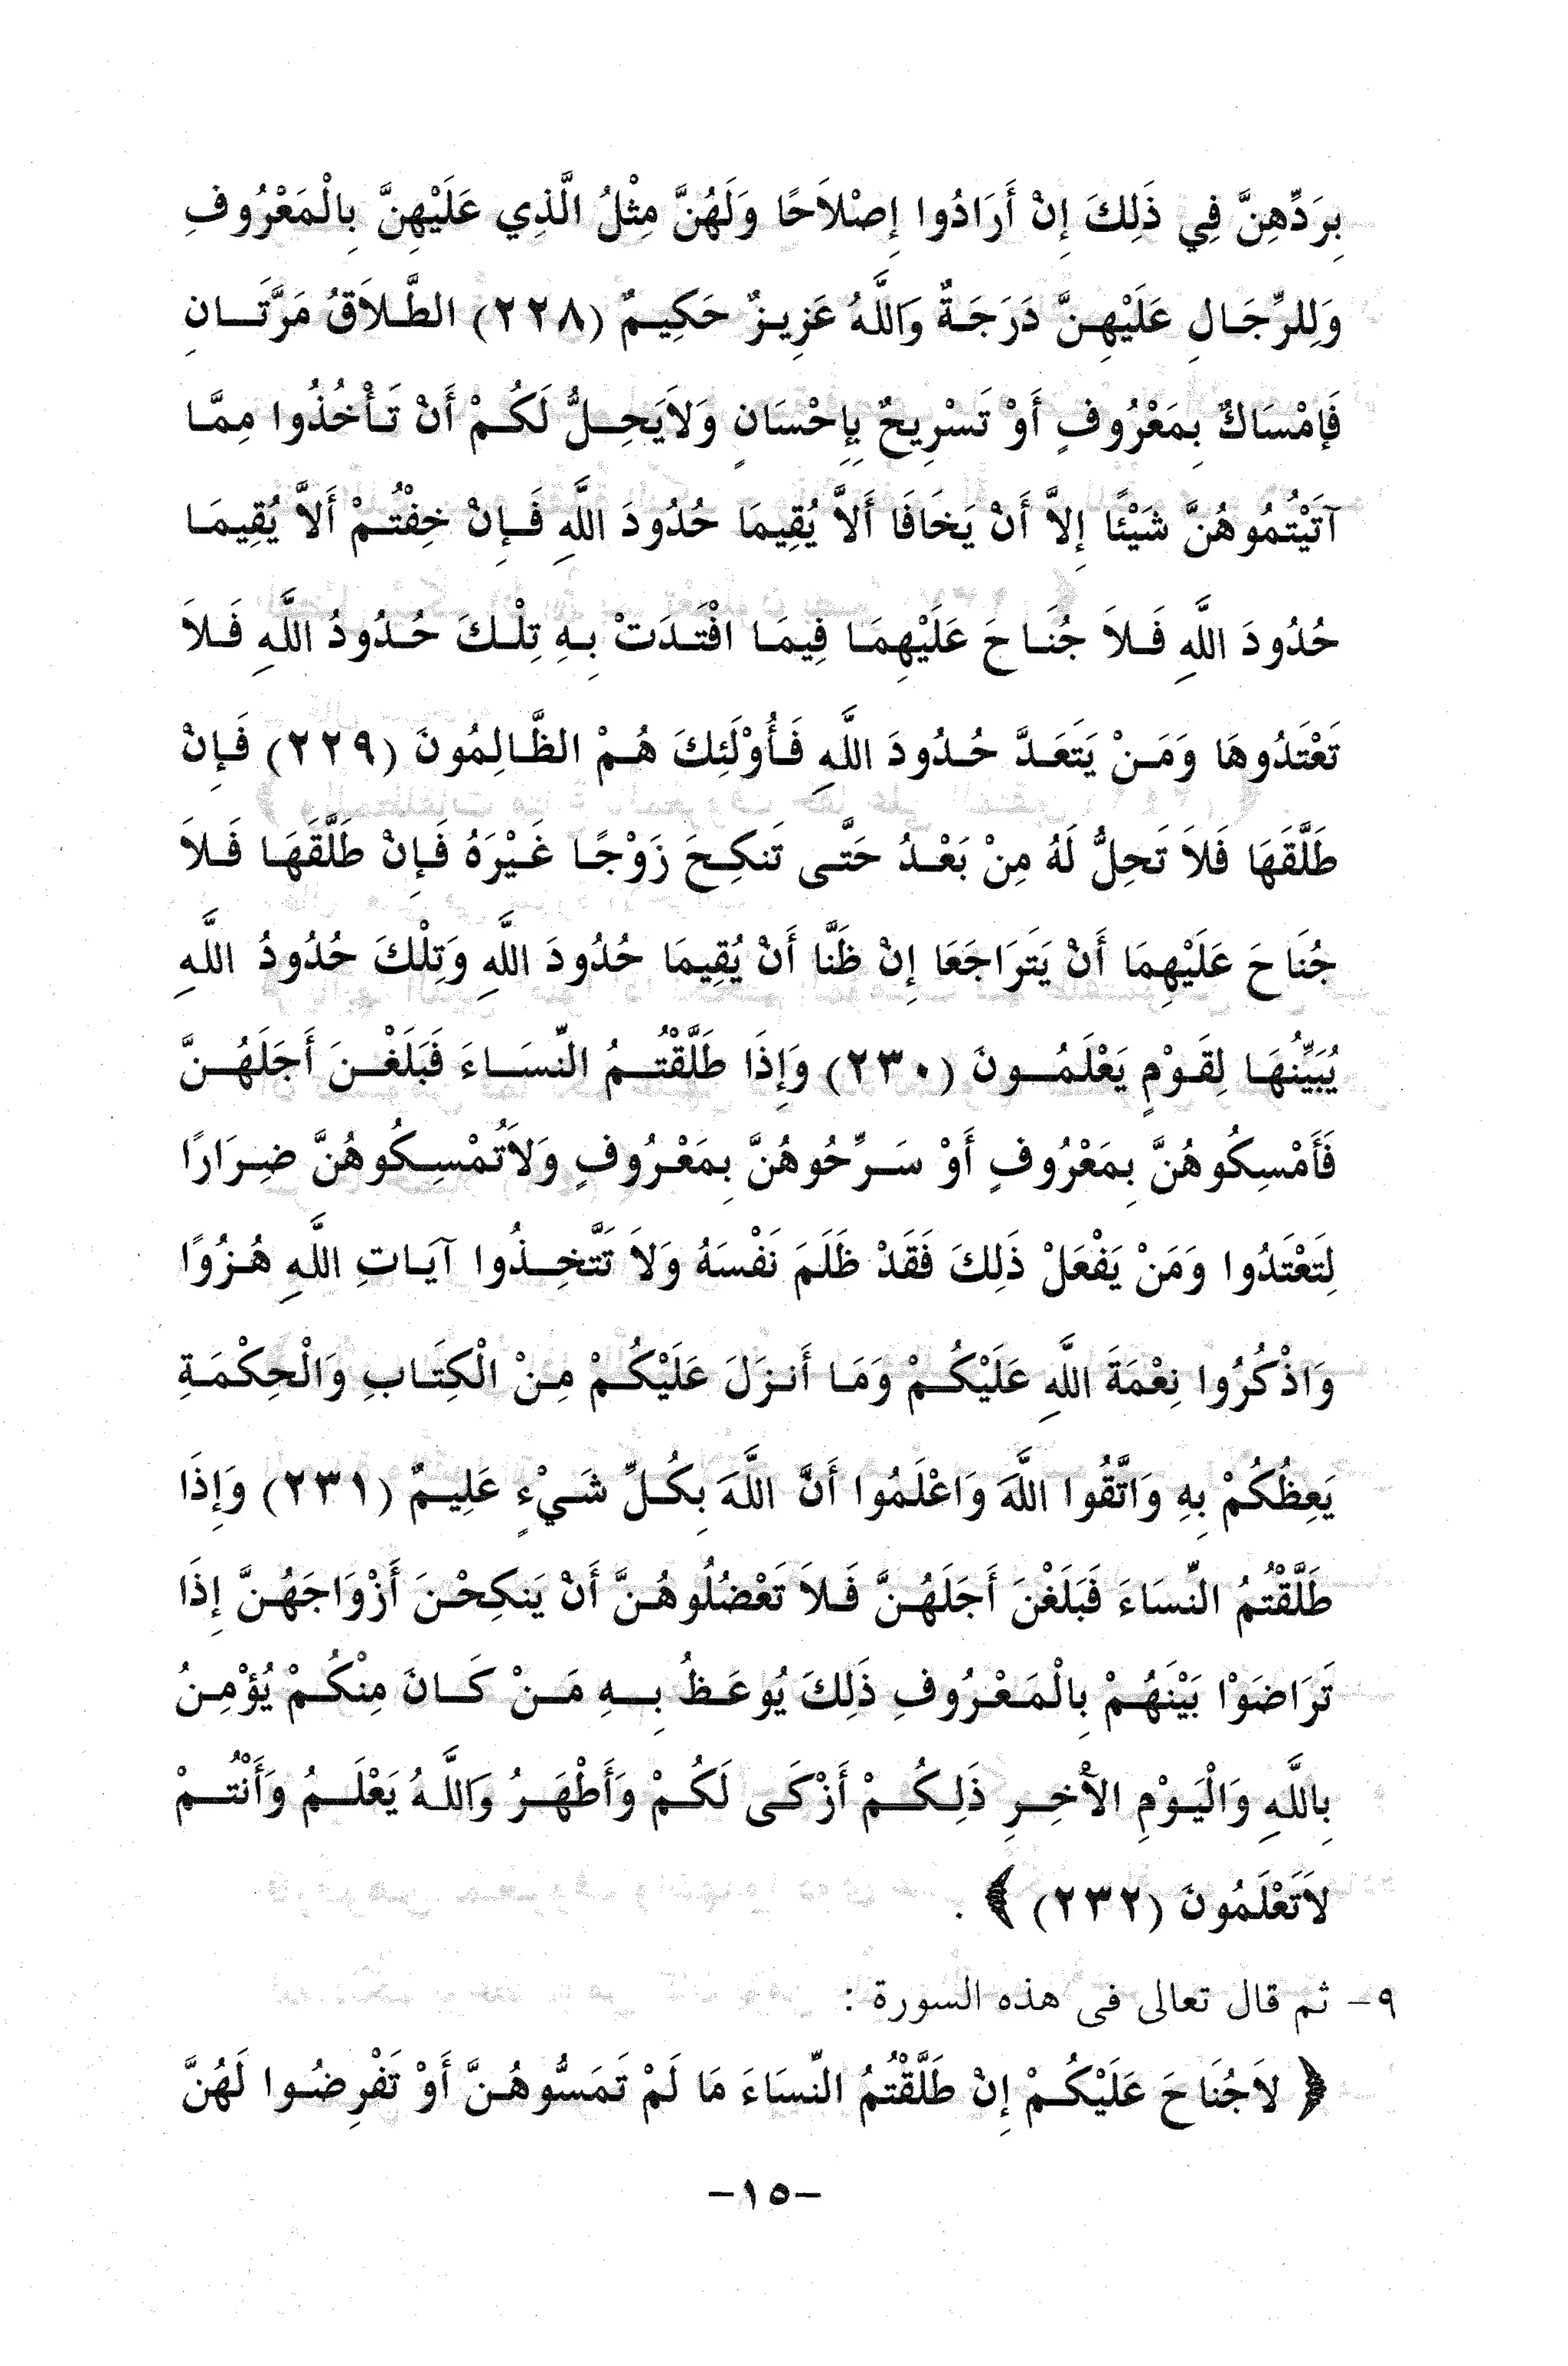 بِرَدِّهِنَّ فِي ذَلِكَ إِنْ أَرَادُوا إِصْلاَحًا وَلَهُنَّ مِثْلُ الَّذِي عَلَيْهِنَّ بِالْمَعْرُوفِ
وَلِلرِّجَالِ عَلَيْهِنَّ دَرَجَةٌ وَاللَّهُ عَزِيزٌ حَكِيمٌ (٢٢٨) الطَّلاَقُ مَرَّتَانِ
فَإمْسَاكٌ بِمَعْرُوفٍ أَوْ تَسْرِيحٌ بِإِحْسَانٍ وَلاَيَحِلُّ لَكُمْ أَنْ تَأْخُذُوا مِمَّا
آتَيْتُمُوهُنَّ شَيْئًا إِلاَّ أَنْ يَخَافَا أَلاَّ يُقِيمَا حُدُودَ اللَّهِ فَإِنْ خِفْتُمْ أَلاَّ يُقِيمَا
حُدُودَ اللَّهِ فَلاَ جُنَاحَ عَلَيْهِمَا فِيمَا افْتَدَتْ بِهِ تِلْكَ حُدُودُ اللَّهِ فَلاَ
تَعْتَدُوهَا وَمَنْ يَتَعَدَّ حُدُودَ اللَّهِ فَأُوْلَئِكَ هُمْ الظَّالِمُونَ (٢٢٩) فَإِنْ
طَلَّقَهَا فَلاَ تَحِلُّ لَهُ مِنْ بَعْدُ حَتَّى تَنكِحَ زَوْجًا غَيْرَهُ فَإِنْ طَلَّقَهَا فَلاَ
جُنَاحَ عَلَيْهِمَا أَنْ يَتَرَاجَعَا إِنْ ظَنَّا أَنْ يُقِيمَا حُدُودَ اللَّهِ وَتِلْكَ حُدُودُ اللَّهِ
يُبَيِّنُهَا لِقَوْمٍ يَعْلَمُونَ (٢٣٠) وَإِذَا طَلَّقْتُمُ النِّسَاءَ فَبَلَغْنَ أَجَلَهُنَّ
فَأَمْسِكُوهُنَّ بِمَعْرُوفٍ أَوْ سَرِّحُوهُنَّ بِمَعْرُوفٍ وَلاَتُمْسِكُوهُنَّ ضِرَارًا
لِتَعْتَدُوا وَمَنْ يَفْعَلْ ذَلِكَ فَقَدْ ظَلَمَ نَفْسَهُ وَلاَ تَتَّخِذُوا آيَاتِ اللَّهِ هُزُوًا
وَاذْكُرُوا نِعْمَةَ اللَّهِ عَلَيْكُمْ وَمَا أَنزَلَ عَلَيْكُمْ مِنْ الْكِتَابِ وَالْحِكْمَةِ
يَعِظُكُمْ بِهِ وَاتَّقُوا اللَّهَ وَاعْلَمُوا أَنَّ اللَّهَ بِكُلِّ شَيْءٍ عَلِيمٌ (٢٣١) وَإِذَا
طَلَّقْتُمُ النِّسَاءَ فَبَلَغْنَ أَجَلَهُنَّ فَلاَ تَعْضُلُوهُنَّ أَنْ يَنكِحْنَ أَزْوَاجَهُنَّ إِذَا
تَرَاضَوْا بَيْنَهُمْ بِالْمَعْرُوفِ ذَلِكَ يُوعَظُ بِهِ مَنْ كَانَ مِنْكُمْ يُؤْمِنُ
بِاللَّهِ وَالْيَوْمِ الآخِرِ ذَلِكُمْ أَزْكَى لَكُمْ وَأَطْهَرُ وَاللَّهُ يَعْلَمُ وَأَنْتُمْ
لاَتَعْلَمُونَ (٢٣٢) ﴾ .
٩- ثم قال تعالى فى هذه السورة :
﴿ لاَجُنَاحَ عَلَيْكُمْ إِنْ طَلَّقْتُمُ النِّسَاءَ مَا لَمْ تَمَسُّوهُنَّ أَوْ تَفْرِضُوا لَهُنَّ
-١٥-